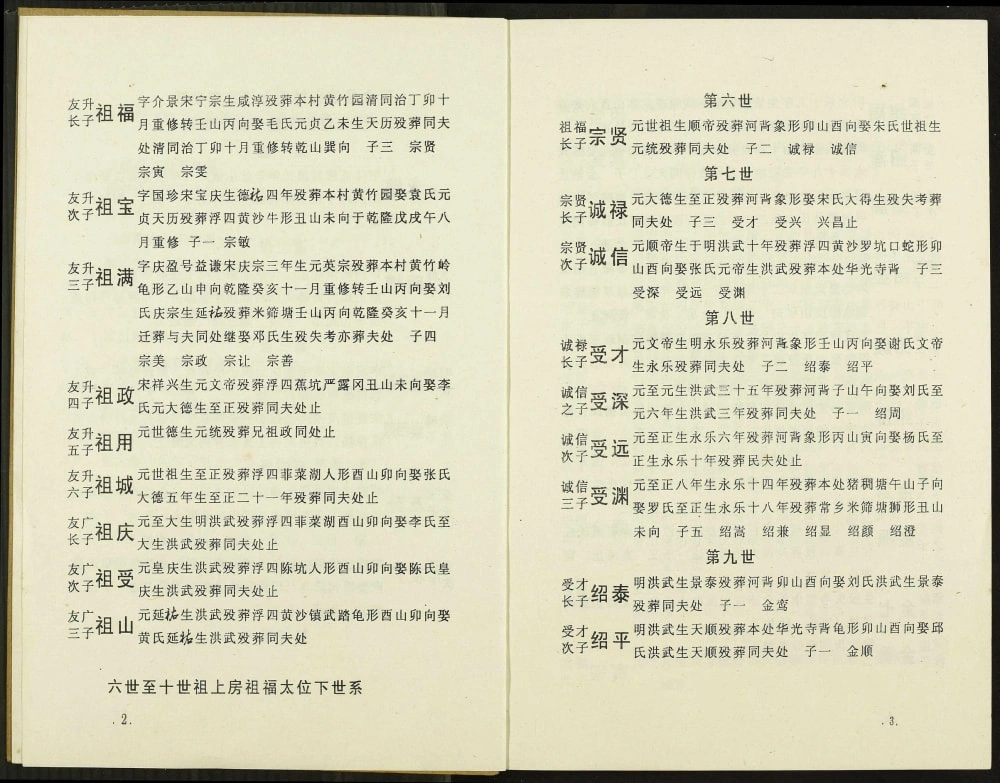 友升长子 祖福 字介景宋宁宗生咸淳殁葬本村黄竹园清同治丁卯十
月重修转壬山丙向娶毛氏元贞乙未生天历殁葬同夫
处清同治丁卯十月重修转乾山巽向 子三 宗贤
宗寅 宗雯
友升次子 祖宝 字国珍宋宝庆生德祐四年殁葬本村黄竹园娶袁氏元
贞天历殁葬浮四黄沙牛形丑山未向于乾隆戊戌午八
月重修 子一 宗敏
友升三子 祖满 字庆盈号益谦宋庆宗三年生元英宗殁葬本村黄竹岭
龟形乙山申向乾隆癸亥十一月重修转壬山丙向娶刘
氏庆宗生延祐殁葬米筛塘壬山丙向乾隆癸亥十一月
迁葬与夫同处继娶邓氏生殁失考亦葬夫处 子四
宗美 宗政 宗让 宗善
友升四子 祖政 宋祥兴生元文帝殁葬浮四蕉坑严露冈丑山未向娶李
氏元大德生至正殁葬同夫处止
友升五子 祖用 元世德生元统殁葬兄祖政同处止
友升六子 祖城 元世祖生至正殁葬浮四菲菜湖人形酉山卯向娶张氏
大德五年生至正二十一年殁葬同夫处止
友广长子 祖庆 元至大生明洪武殁葬浮四菲菜湖酉山卯向娶李氏至
大生洪武殁葬同夫处止
友广次子 祖受 元皇庆生洪武殁葬浮四陈坑人形酉山卯向娶陈氏皇
庆生洪武殁葬同夫处止
友广三子 祖山 元延祐生洪武殁葬浮四黄沙镇武踏龟形酉山卯向娶
黄氏延祐生洪武殁葬同夫处
六世至十世祖上房祖福太位下世系
.2.
第六世
祖福长子 宗贤 元世祖生顺帝殁葬河背象形卯山酉向娶朱氏世祖生
元统殁葬同夫处 子二 诚禄 诚信
第七世
宗贤长子 诚禄 元大德生至正殁葬河背象形娶宋氏大得生殁失考葬
同夫处 子三 受才 受兴 兴昌止
宗贤次子 诚信 元顺帝生于明洪武十年殁葬浮四黄沙罗坑口蛇形卯
山酉向娶张氏元帝生洪武殁葬本处华光寺背 子三
受深 受远 受渊
第八世
诚禄长子 受才 元文帝生明永乐殁葬河背象形壬山丙向娶谢氏文帝
生永乐殁葬同夫处 子二 绍泰 绍平
诚信之子 受深 元至元生洪武三十五年殁葬河背子山午向娶刘氏至
元六年生洪武三年殁葬同夫处 子一 绍周
诚信次子 受远 元至正生永乐六年殁葬河背象形丙山寅向娶杨氏至
正生永乐十年殁葬民夫处止
诚信三子 受渊 元至正八年生永乐十四年殁葬本处猪稠塘午山子向
娶罗氏至正生永乐十八年殁葬常乡米筛塘狮形丑山
未向 子五 绍嵩 绍兼 绍显 绍颜 绍澄
第九世
受才长子 绍泰 明洪武生景泰殁葬河背卯山酉向娶刘氏洪武生景泰
殁葬同夫处 子一 金鸾
受才次子 绍平 明洪武生天顺殁葬本处华光寺背龟形卯山酉向娶邱
氏洪武生天顺殁葬同夫处 子一 金顺
.3.